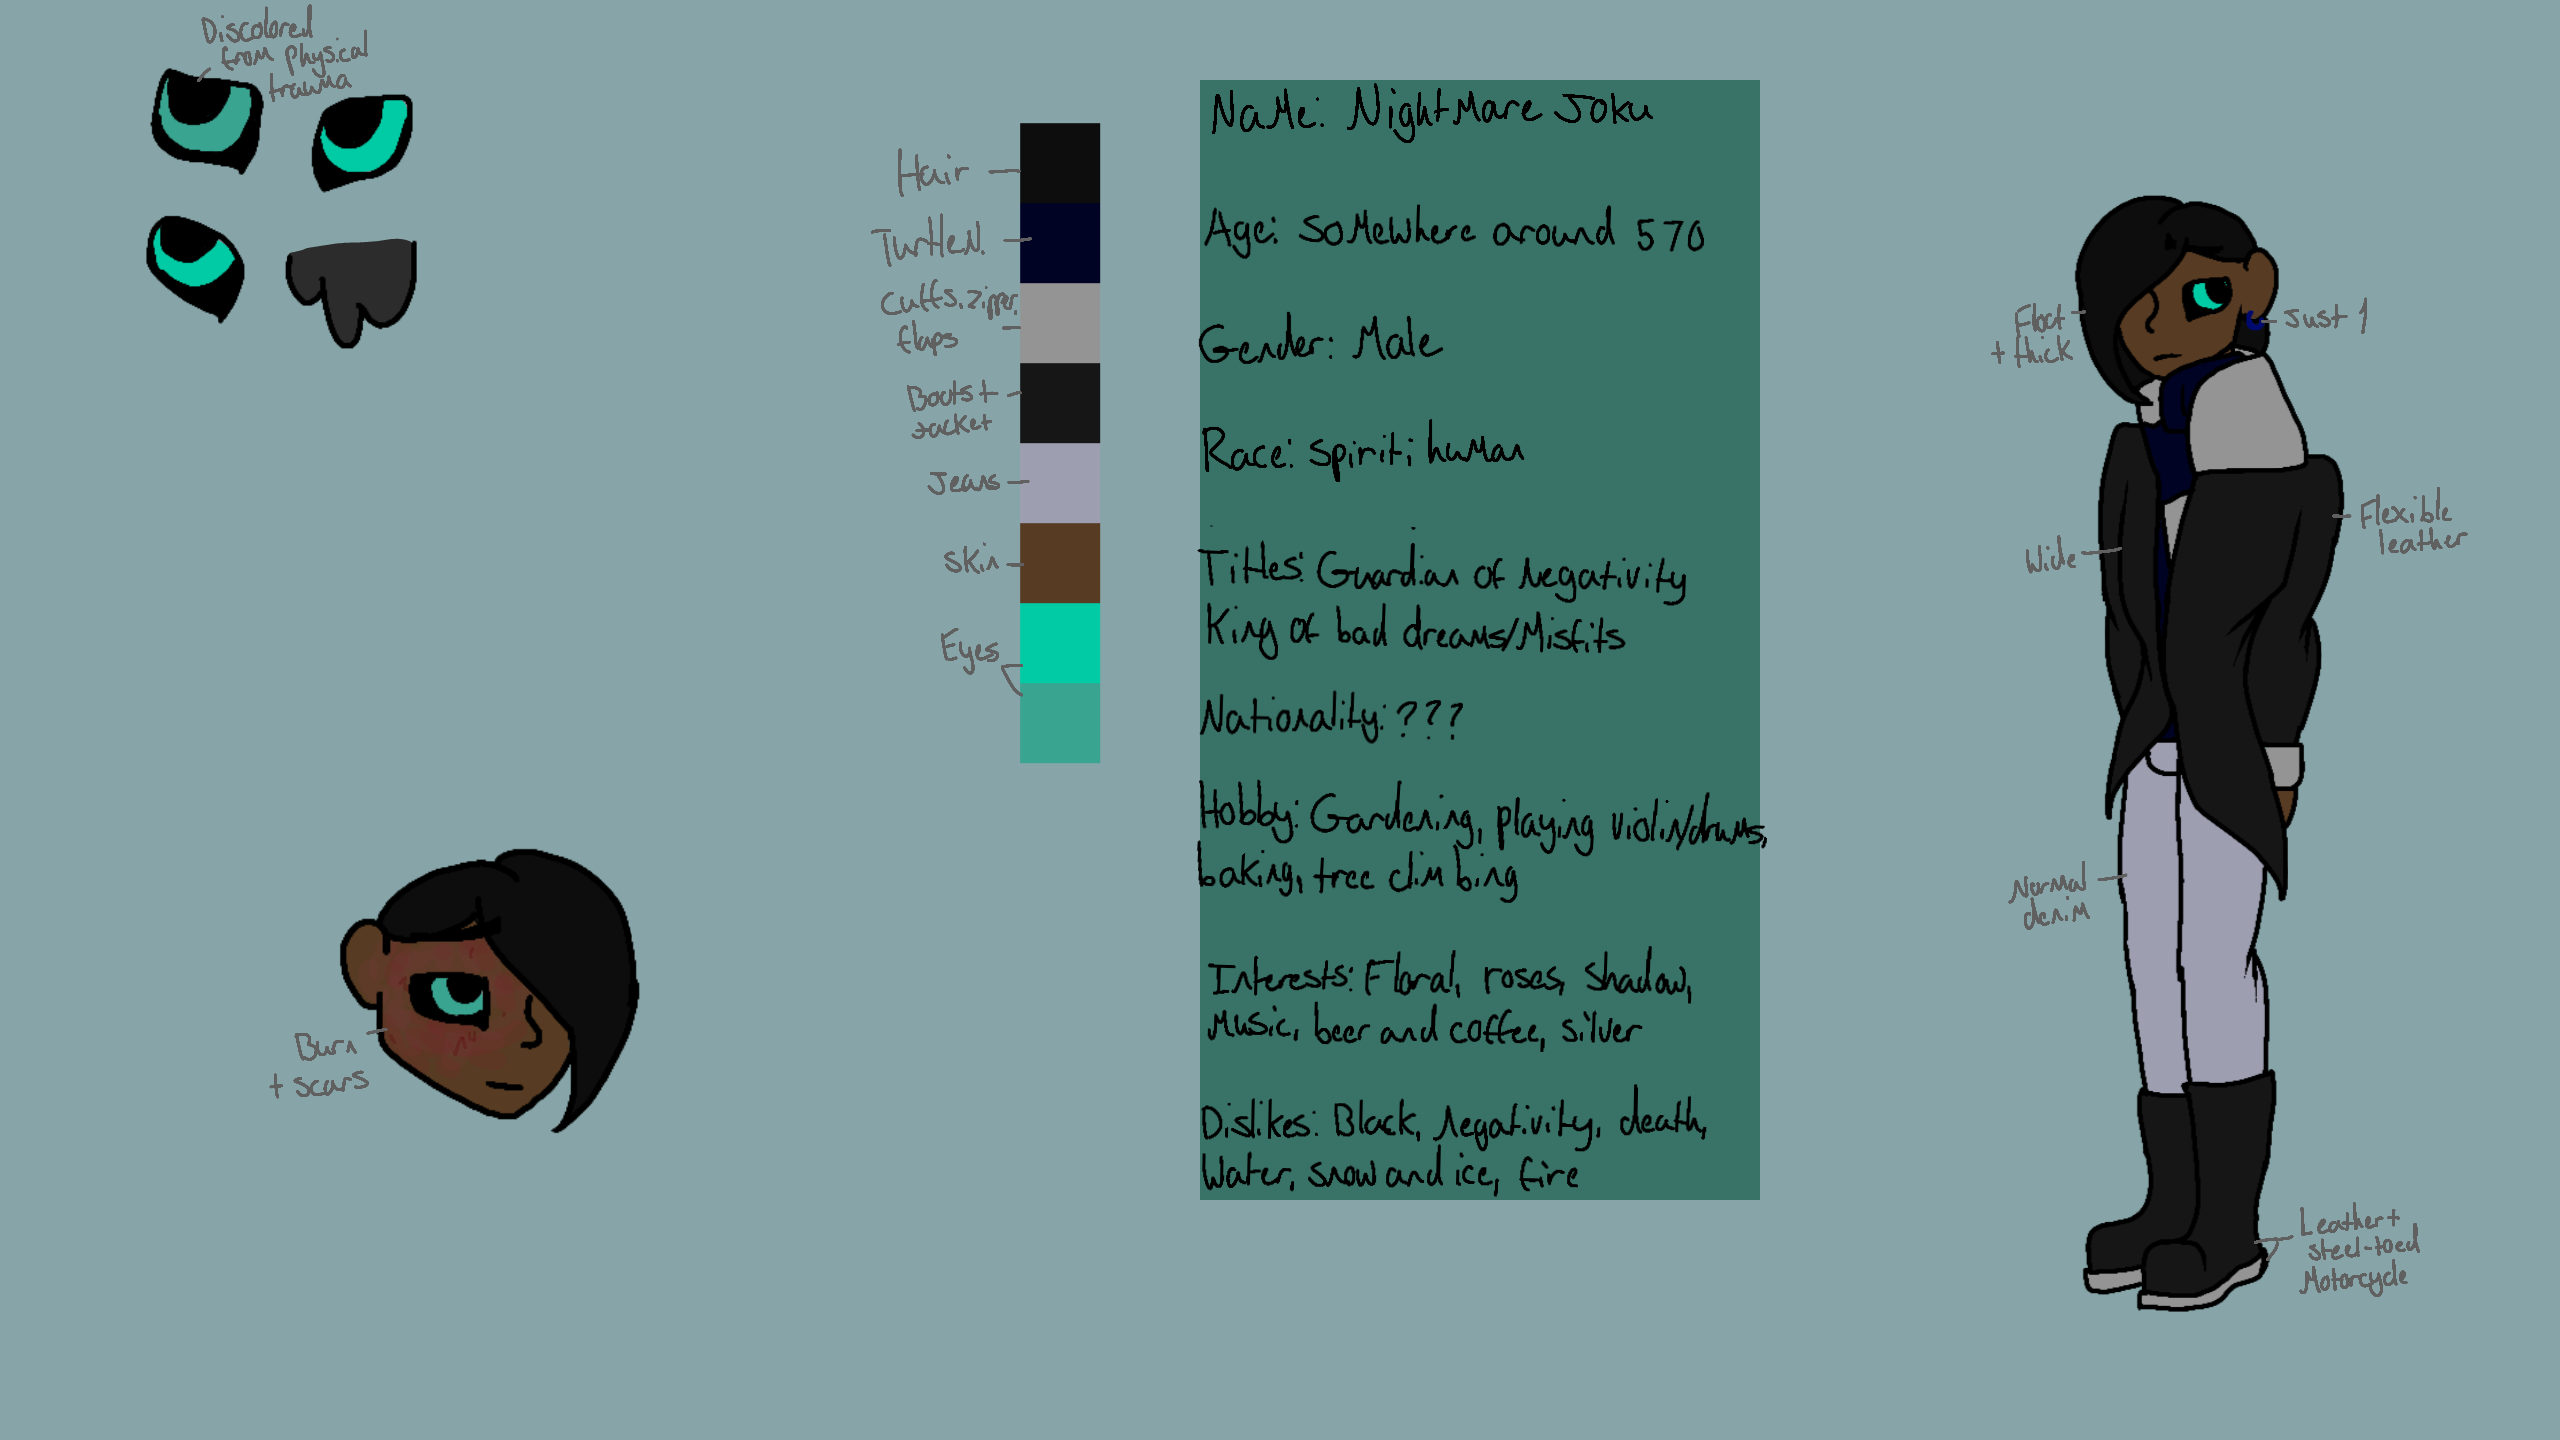 Discolored
from physical
trauma
Hair
TurtleN.
Cuffs, zipper,
flaps
Boots +
Jacket
Jeans
Skin
Eyes
Burn
+ scars
Name: Nightmare Joku
Age: Somewhere around 570
Gender: Male
Race: Spirit; human
Titles: Guardian of Negativity
King of bad dreams/Misfits
Nationality: ???
Hobby: Gardening, playing violin/drums,
baking, tree climbing
Interests: Floral, roses, shadow,
Music, beer and coffee, silver
Dislikes: Black, Negativity, death,
Water, snow and ice, fire
+ thick
Just 1
Wide
Flexible
leather
Normal
denim
Leather +
steel-toed
Motorcycle